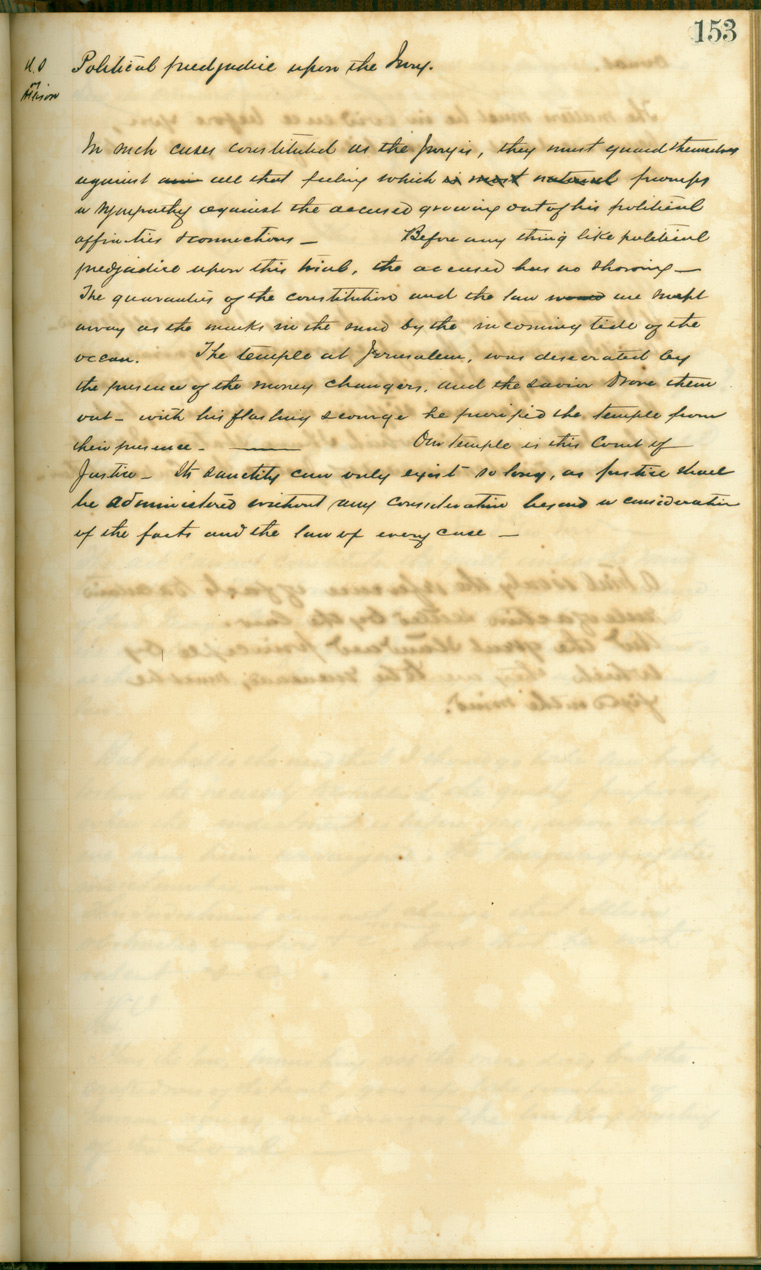 153
U.S Political predjudice upon the Jury.
vs
In such cases constituted as the Jury is, they must guard themselves
against all that feeling which is most natural prompts
a sympathy against the accused growing out of his political
affinities & connections — Before any thing like political
predjudice upon this trial, the accused has no showing —
The guaranties of the constitution and the law are swept
away as the marks in the sand by the incoming tide of the
ocean. The temple at Jerusalem, was desecrated by
the presence of the money changers, and the Savior drove them
out — with his flashing scourge he purified the temple from
their presence. — Our temple is this Court of
Justice — Its sanctity can only exist so long, as Justice shall
be administered without any consideration beyond a consideration
of the facts and the law of every case —